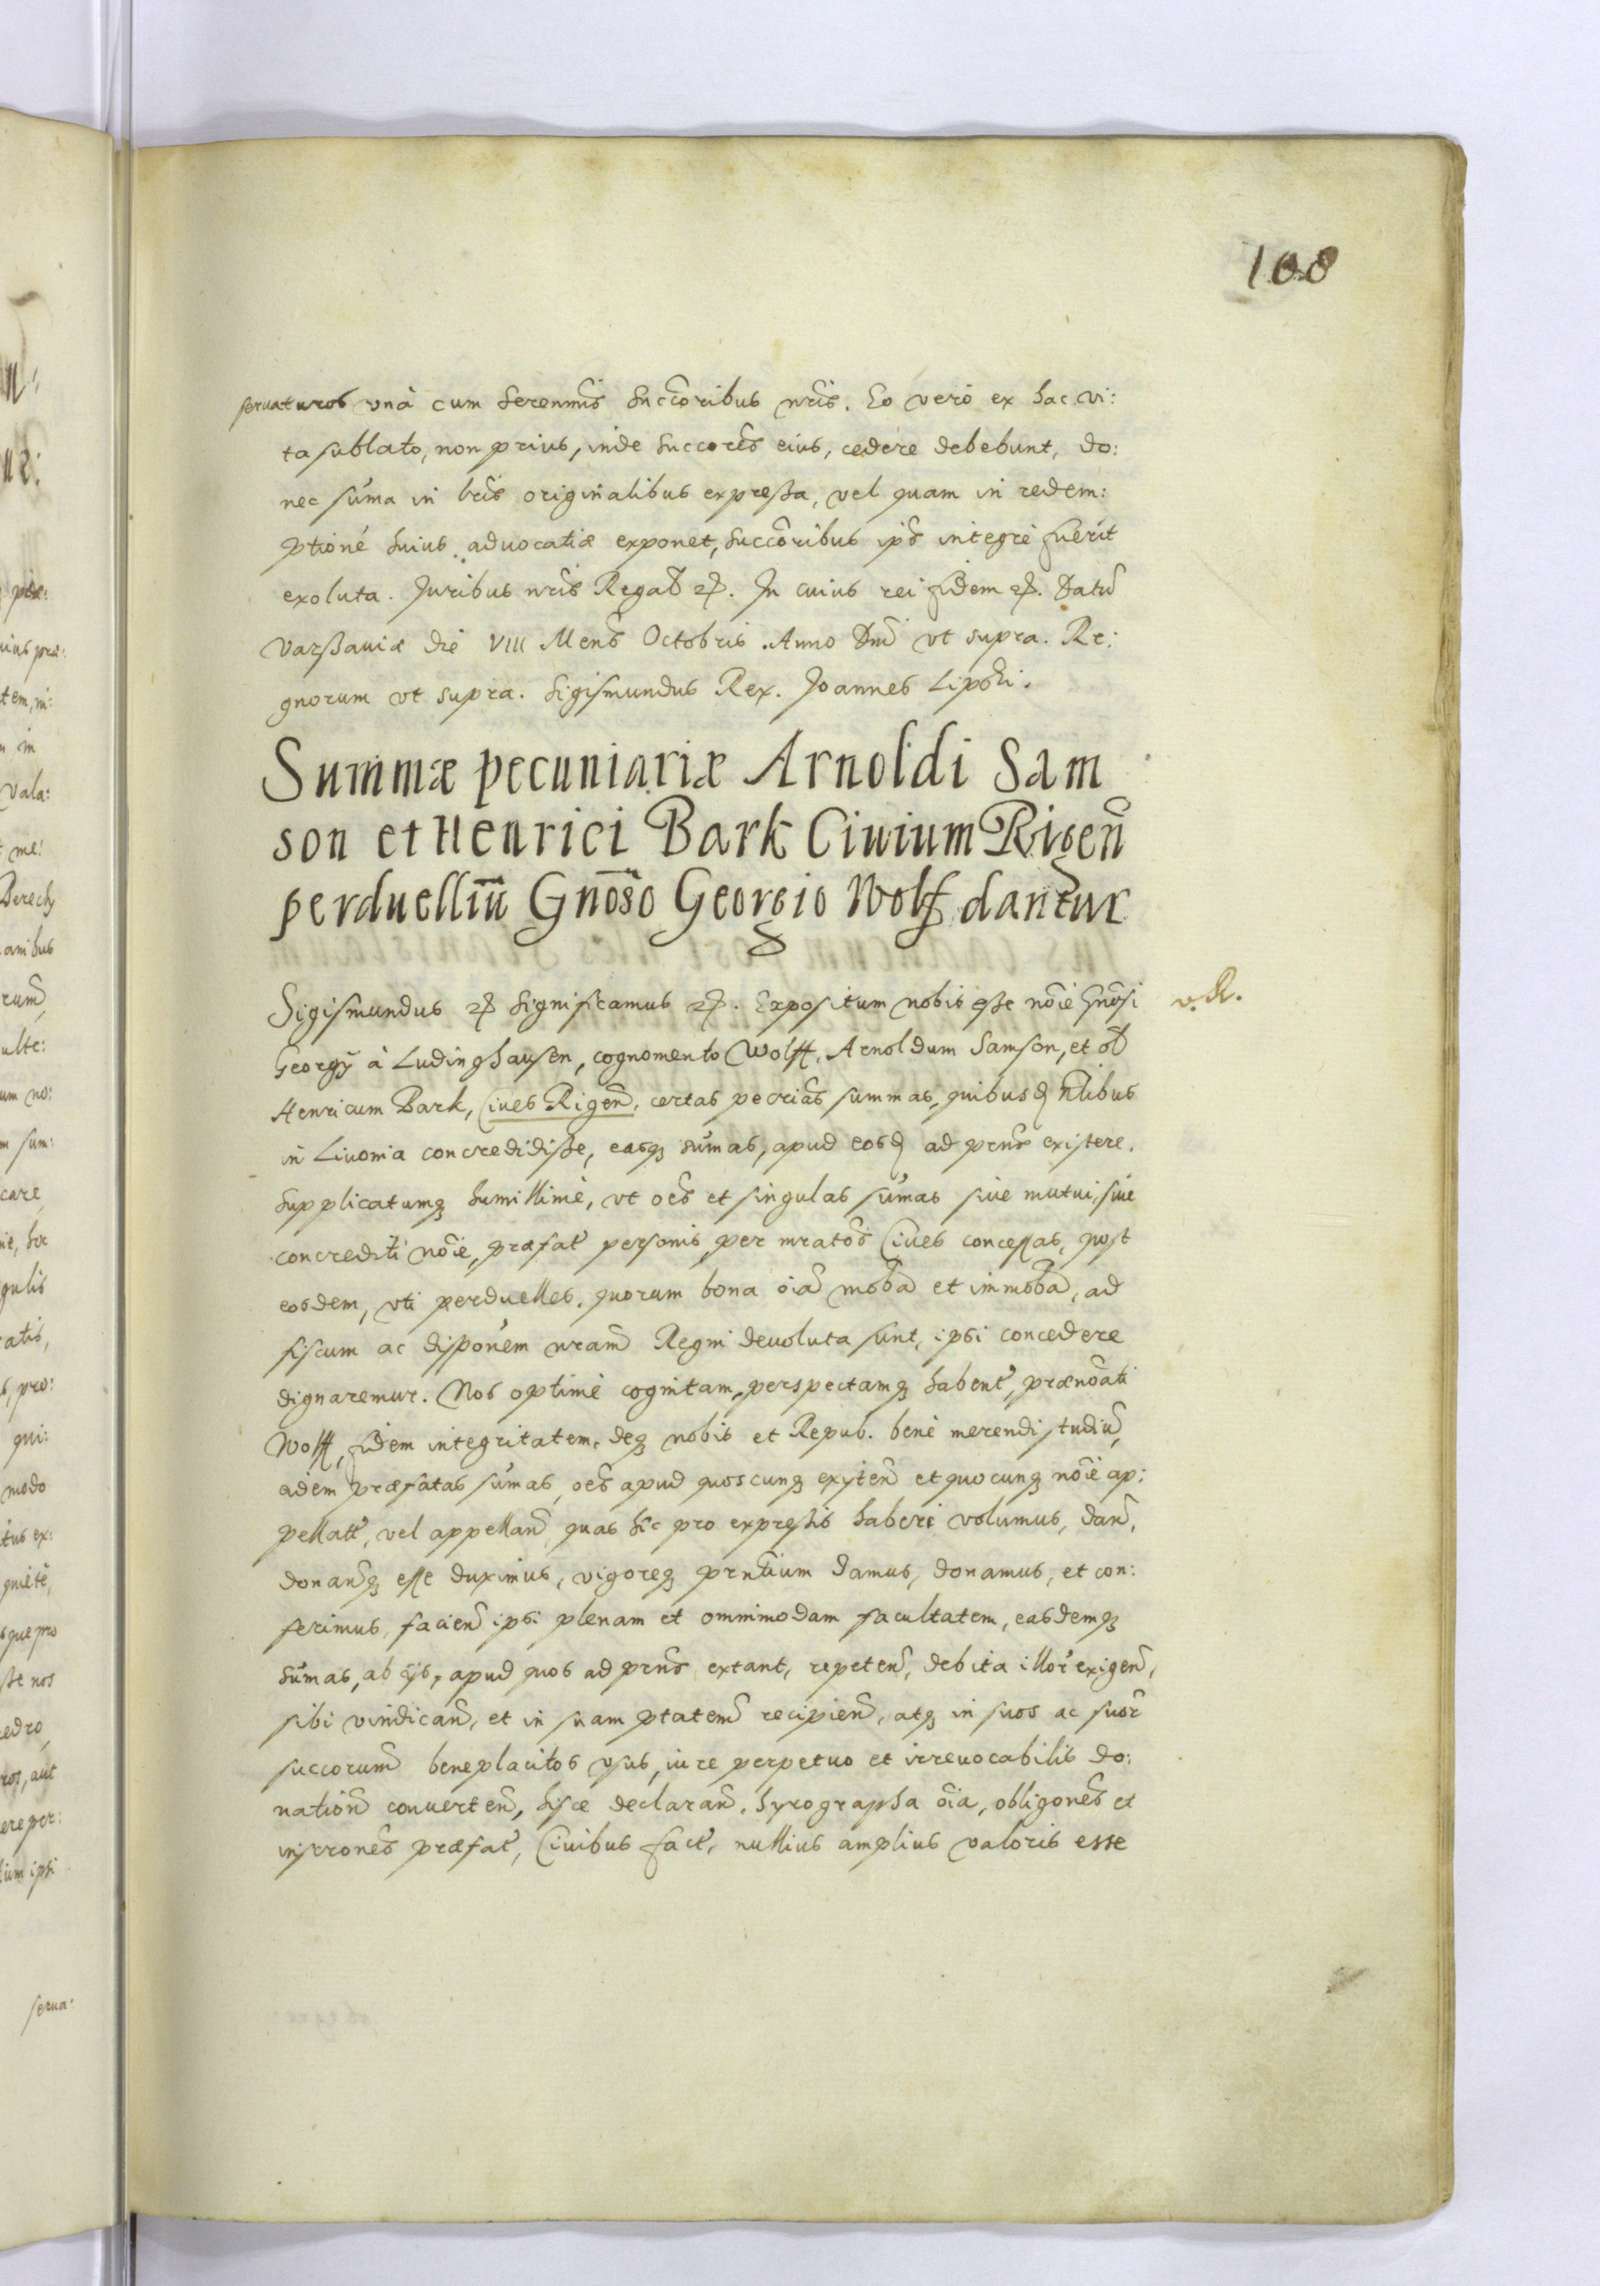 100
seruaturos vnà cum Serenmis Succoribus nris. Eo vero ex hac vi:
ta sublato, non prius, inde Succores eius, cedere debebunt, do:
nec suma in lris originalibus expressa, vel quam in redem:
ptione huius aduocatiæ exponet, Succoribus ipso integrè fuerit
exoluta. Juribus nris Regal etc. In cuius rei fidem etc. Datu
Varssauiæ die VIII Mens Octobris. Anno Dni vt supra. Re:
gnorum vt supra. Sigismundus Rex. Joannes Lipski.
Summæ pecuniariæ Arnoldi Sam
son et Henrici Bark Ciuium Rigen
perduelliu Gnoso Georgio Wolf dantur
Sigismundus etc Significamus etc. Expositum nobis esse noie Gnosi
v. R.
Georgij à Ludinghausen, cognomento Wolff, Arnoldum Samson, et
Henricum Bark, Ciues Rigen, certas pecrias summas, quibusd Nlibus
in Liuonia concredidisse, easq sumas, apud eosd ad prns existere.
Supplicatumq humillimè, vt oes et singulas sumas siue mutui, siue
concrediti noie, præfat personis per mratos Ciues concessas, post
eosdem, vti perduelles, quorum bona oia moba et immoba, ad
fiscum ac disponem nram Regni deuoluta sunt, ipsi concedere
dignaremur. Nos optimè cognitam, perspectamq habent, prænoati
Wolff, fidem integritatem, deq nobis et Repub. benè merendi studiu,
eidem præfatas sumas, oes apud quoscunq existen et quocunq noie ap:
pellatt, vel appellan, quas hic pro expressis haberi volumus, dan,
donanq esse duximus, vigoreq prntium damus, donamus, et con:
ferimus, facien ipsi plenam et omnimodam facultatem, easdemq
sumas, ab ijs, apud quos ad prns extant, repeten, debita illor exigen,
sibi vindican, et in suam ptatem recipien, atq in suos ac suor
succorum beneplacitos vsus, iure perpetuo et irreuocabilis do:
nation conuerten, hisce declaran, hyrographa oia, obligones et
inscrones præfat, Ciuibus fact, nullius amplius valoris esse